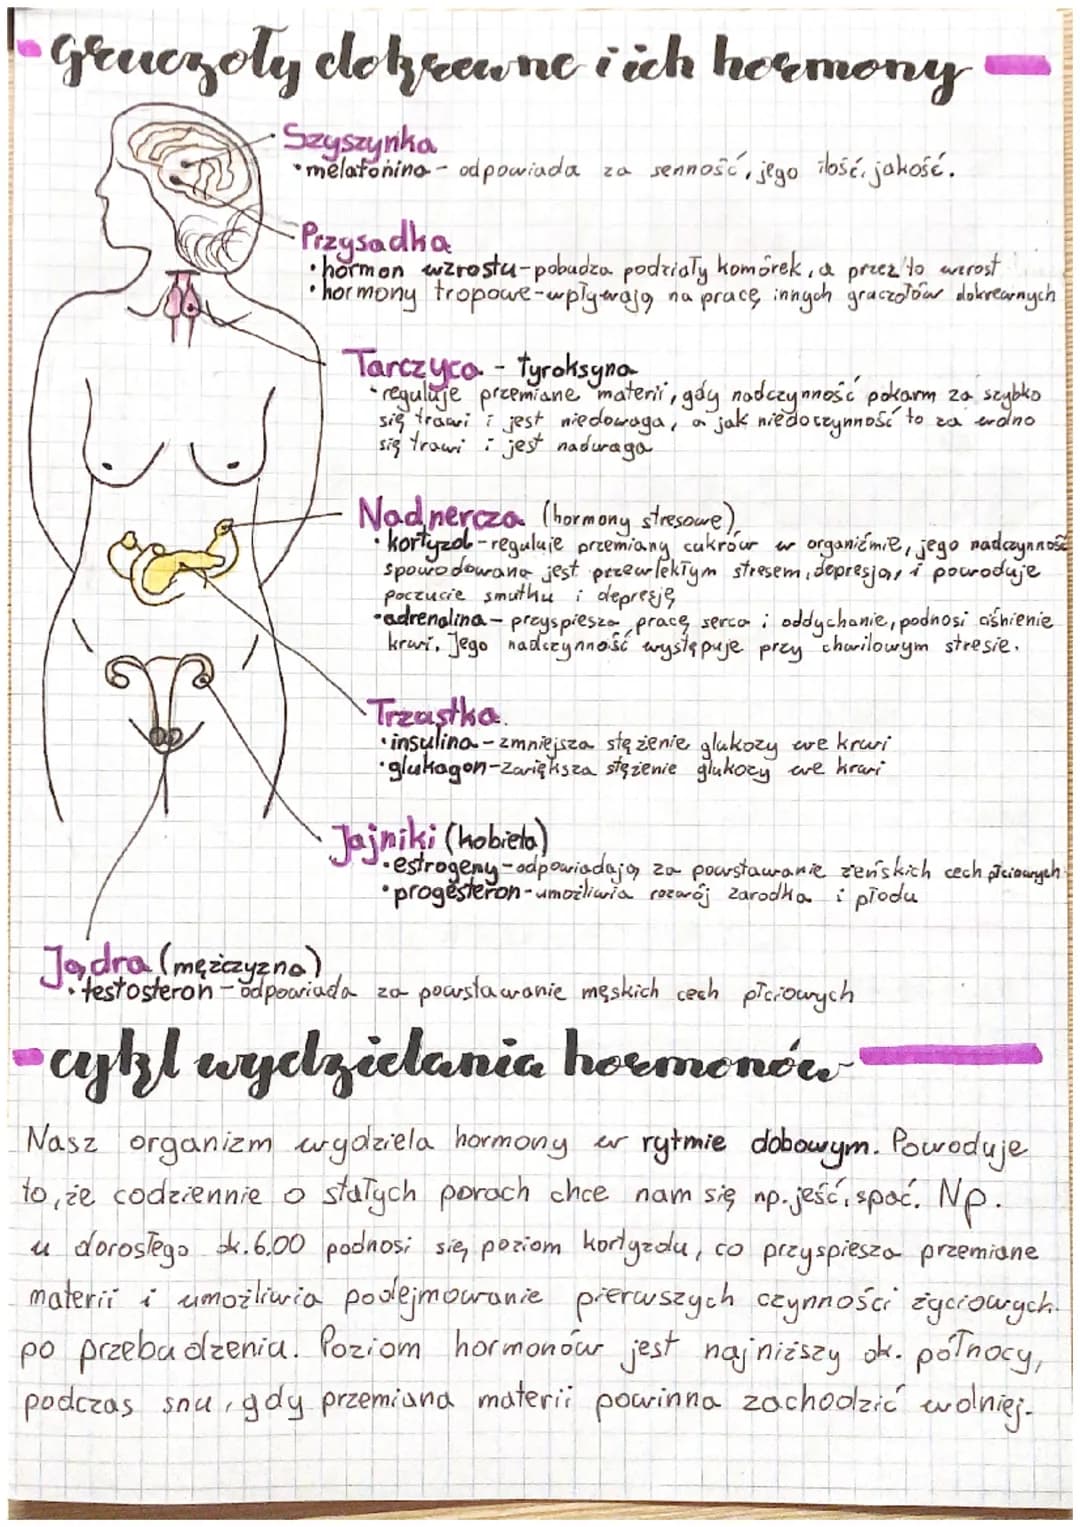 gruczoły dokrewne i ich hormony
Szyszynka
• melatonina - odpowiada za senność, jego ilość i jakość.
Przysadka
• hormon wzrostu - pobudza podziały komórek, a przez to wzrost
• hormony tropowe - wpływają na pracę innych gruczołów dokrewnych
Tarczyca - tyroksyna
• reguluje przemiane materii, gdy nadczynność pokarm za szybko
się trawi i jest niedowaga, a jak niedoczynność to za wolno
się trawi i jest nadwaga
Nadnercza (hormony stresowe)
• kortyzol - reguluje przemiany cukrów w organiźmie, jego nadczynność
spowodowana jest przewlekłym stresem, depresją, i powoduje
poczucie smutku i depresję
• adrenalina - przyspiesza pracę serca i oddychanie, podnosi ciśnienie
krwi. Jego nadczynność występuje przy chwilowym stresie.
Trzustka
• insulina - zmniejsza stężenie glukozy we krwi
• glukagon - zwiększa stężenie glukozy we krwi
Jajniki (kobieta)
• estrogeny - odpowiadają za powstawanie żeńskich cech płciowych
• progesteron - umożliwia rozwój zarodka i płodu
Jądra (mężczyzna)
• testosteron - odpowiada za powstawanie męskich cech płciowych
cykl wydzielania hormonów
Nasz organizm wydziela hormony w rytmie dobowym. Powoduje
to, że codziennie o stałych porach chce nam się np. jeść, spać. Np.
u dorosłego ok. 6.00 podnosi się poziom kortyzolu, co przyspiesza przemiane
materii i umożliwia podejmowanie pierwszych czynności życiowych
po przebudzeniu. Poziom hormonów jest najniższy ok. północy,
podczas snu, gdy przemiana materii powinna zachodzić wolniej.